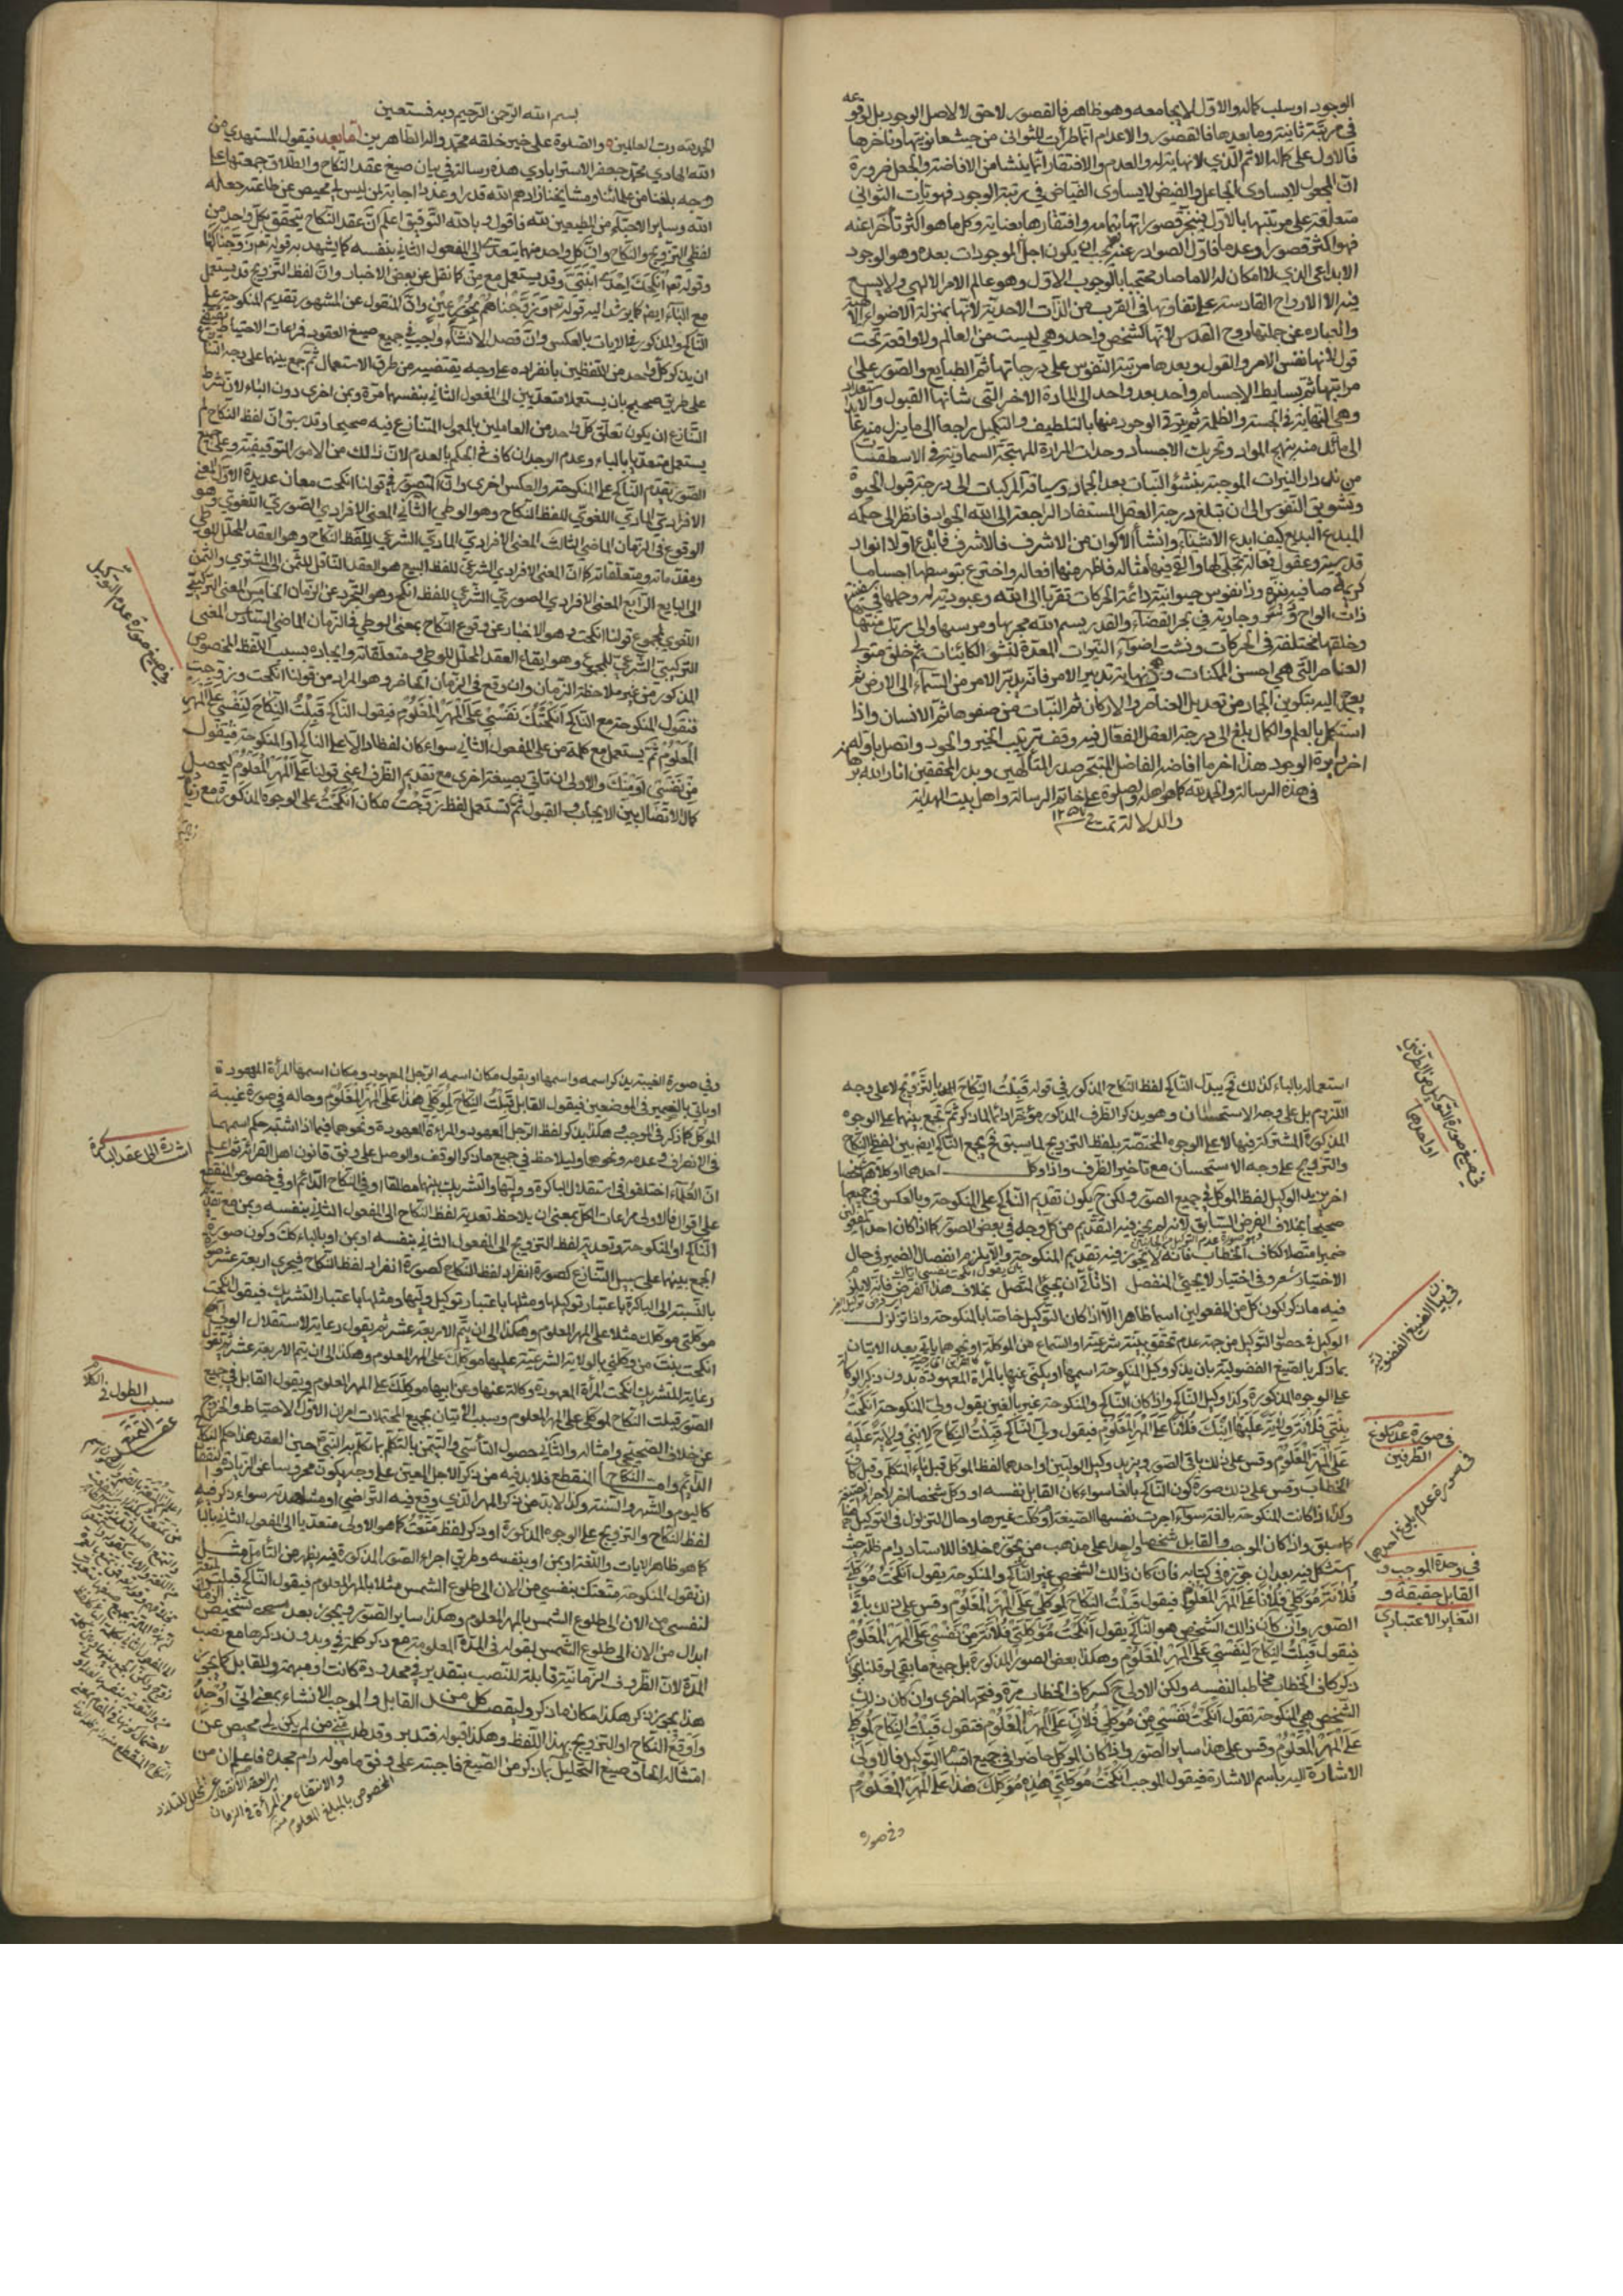 الوجود او سلب كماله والاول لايجامعه وهو ظاهر فالقصور لاحق لا لاصل الوجود بل لوقوعه
في مرتبة ثانية وما بعدها فالقصور والاعدام انما طرأت للثواني من حيث ثانويتها وتاخرها
فالاول على كماله الاتم الذي لانهاية له والعدم والافتقار انما ينشأ من الافاضة والجعل ضرورة
ان المجعول لايساوى الجاعل والفيض لايساوى الفياض في مرتبة الوجود فهويات الثواني
متعلقة على مرتبتها بالاول فينجبر قصوراتها بتمامه وافتقارها بغنايه وكل ما هو اكثر تأخرا عنه
فهو اكثر قصورا وعدما فاول الصوادر عنه يجب ان يكون اجل الموجودات بعده وهو الوجود
الابداعي الذي لا امكان له الا ما صار محتجبا بالوجوب الاول وهو عالم الامر الالهي ولايسع
فيه الا الارواح القادسة على تفاوتها في القرب من الذات الاحدية لانها بمنزلة الاضواء الالهية
والعبارة عن جملتها روح القدس لانها كشخص واحد وهي ليست من العالم ولا واقعة تحت
قول كن لانها نفس الامر والقول وبعدها مرتبة النفوس على درجاتها ثم الطبايع والصور على
مراتبها ثم بسايط الاجسام واحد بعد واحد الى المادة الاخيرة التي شانها القبول والاستعداد
وهي النهاية في الخسة والظلمة ثم يترقى الوجود منها بالتلطيف والتكميل راجعا الى ما نزل منه عائدا
الى ما بدأ منه بتهيج المواد وتحريك الاجساد وحداث الحرارة المهيجة السماوية في الاسطقسات
من تداوير النيرات الموجبة بنشو النبات بعد الجماد وسياقة المركبات الى درجة قبول الحيوة
وتشويق النفوس الى ان تبلغ درجة العقل المستفاد الراجعة الى الله الجواد فانظر الى حكمة
المبدع البديع كيف ابدع الاشياء وانشأ الاكوان من الاشرف فالاشرف فابدع اولا انوارا
قدسية وعقولا فعالة تجلى لها والقى فيها مثاله فاظهر منها افعاله واخترع بتوسطها اجساما
كريمة صافية نيرة ذا نفوس حيوانية دائمة الحركات تقربا الى الله وعبودية له وحملها في سفينة
ذات الواح ودسر جارية في بحر القضاء والقدر بسم الله مجريها ومرسيها والى ربك منتهاها
وخلقها مختلفة في الحركات ونسب اضواء النيرات المعدة لنشو الكاينات ثم خلق هيولى
العناصر التي هي اخس الممكنات وهي نهاية تدبير الامر فانه يدبر الامر من السماء الى الارض ثم
يعرج اليه بتكوين الجماد من تعديل العناصر والاركان ثم النبات من صفوها ثم الانسان واذا
استكمل بالعلم والكمال بلغ الى درجة العقل الفعال فيه وقف ترتيب الخير والجود واتصل باوله
اخر دايرة الوجود هذا اخر ما افاضه الفاضل المتبحر صدر المتألهين وبدر المحققين انار الله برهانه
في هذه الرسالة والحمد لله كما هو اهله والصلوة على خاتم الرسالة واهل بيت الهداية
والدلالة تمت في ١٢٥٧
بسم الله الرحمن الرحيم وبه نستعين
الحمد لله رب العالمين والصلوة على خير خلقه محمد واله الطاهرين اما بعد فيقول المستهدي من
الله الهادي محمد جعفر الاسترابادي هذه رسالة في بيان صيغ عقد النكاح والطلاق جمعتها على
وجه بلغنا من علمائنا ومشايخنا زادهم الله قدرا وعددا اجابة لمن ليس لي محيص عن طاعته جعله
الله وساير الاحباء من المطيعين لله فاقول وبالله التوفيق اعلم ان عقد النكاح يتحقق بكل واحد من
لفظي التزويج والنكاح وان كل واحد منهما يتعدى الى المفعول الثاني بنفسه كما يشهد به قوله تعم زوجناكها
وقوله تعم انكحك احدى ابنتي وقد يستعمل مع من كما نقل عن بعض الاخبار وان لفظ التزويج قد يستعمل
مع الباء ايضا كما يرشد اليه قوله تعم وزوجناهم بحور عين وان المنقول عن المشهور تقديم المنكوحة على
الناكح والمذكور في الايات بالعكس وان قصد الانشاء واجب في جميع صيغ العقود فمراعات الاحتياط يقتضي
ان يذكر كل واحد من اللفظين بانفراده على وجه يقتضيه من طرق الاستعمال ثم جمع بينهما على وجه التنازع
على طريق صحيح بان يستعملا متعديين الى المفعول الثاني بنفسهما مرة وبمن اخرى دون الباء لان شرط
التنازع ان يكون تعلق كل واحد من العاملين بالمعمول المتنازع فيه صحيحا وقد سبق ان لفظ النكاح لم
يستعمل متعديا بالباء وعدم الوجدان كاف في الحكم بالعدم لان ذلك من الامور التوقيفية وعلى جميع
الصور يقدم الناكح على المنكوحة والعكس اخرى وان المتصور في قولنا انكحت معان عديدة الاول المعنى
الافرادي المادي اللغوي للفظ النكاح وهو الوطي الثاني المعنى الافرادي الصوري اللغوي وهو
الوقوع في الزمان الماضي الثالث المعنى الافرادي المادي الشرعي للفظ النكاح وهو العقد المحلل للوطي
ومقدماته ومتعلقاته كما ان المعنى الافرادي الشرعي للفظ البيع هو العقد الناقل للثمن الى المشتري والثمن
الى البايع الرابع المعنى الافرادي الصوري الشرعي للفظ انكح وهو التجرد عن الزمان الخامس المعنى التركيبي
اللغوي لمجموع قولنا انكحت وهو الاخبار عن وقوع النكاح بمعنى الوطي في الزمان الماضي السادس المعنى
التركيبي الشرعي للمجموع وهو ايقاع العقد المحلل للوطي ومتعلقاته وايجاده بسبب اللفظ المخصوص
المذكور من غير ملاحظة الزمان وان وقع في الزمان الحاضر وهو المراد من قولنا انكحت وزوجت
فتقول المنكوحة مع الناكح انكحتك نفسي على المهر المعلوم فيقول الناكح قبلت النكاح لنفسي على المهر
المعلوم ثم يستعمل مع كلمة من على المفعول الثاني سواء كان لفظا دالا على الناكح او المنكوحة فتقول
من نفسي او منك والاولى ان تاتي بصيغة اخرى مع تقديم الظرف اعني قولنا على المهر المعلوم ليحصل
كمال الاتصال بين الايجاب والقبول ثم تستعمل لفظ زوجت مكان انكحت على الوجوه المذكورة مع زيادة
في صيغ صورة عدم التوكيل
استعماله بالباء كذلك ثم يبدل الناكح لفظ النكاح المذكور في قوله قبلت النكاح بالتزويج لا على وجه
اللزوم بل على وجه الاستحسان وهو يذكر الظرف المذكور مؤخرا دائما لما ذكر ثم تجمع بينهما على الوجوه
المذكورة المشتركة فيها لا على الوجوه المختصة بلفظ التزويج لما سبق ثم يجمع الناكح ايضا بين لفظي النكاح
والتزويج على وجه الاستحسان مع تاخير الظرف واذا وكل احدهما او كلاهما شخصا
اخر يزيد الوكيل لفظ الموكل في جميع الصور ولكن ح يكون تقديم الناكح على المنكوحة وبالعكس في جميعها
صحيحا بخلاف الفرض السابق لانه لم يجز فيه التقديم من كل وجه في بعض الصور كما اذا كان احد المفعولين
ضميرا متصلا ككاف الخطاب فانه لا يجوز فيه تقديم المنكوحة والا يلزم انفصال الضمير في حال
الاختيار شعر وفي اختيار لا يجئ المنفصل اذا تأتى ان يجئ المتصل بخلاف هذا الفرض فانه لايلزم
فيه ما ذكر لكون كل من المفعولين اسما ظاهرا الا اذا كان التوكيل خاصا بالمنكوحة واذا تزلزل
الوكيل في حصول التوكيل من جهة عدم تحقق بينة شرعية او السماع من الموكلة او نحوها ياتي بعد الاتيان
بما ذكر بالصيغ الفضولية بان يذكر وكيل المنكوحة اسمها او يكنى عنها بالمرأة المعهودة بدون ذكر الوكالة
على الوجوه المذكورة وكذا وكيل الناكح واذا كان الناكح والمنكوحة غير بالغين يقول ولي المنكوحة انكحت
بنتي فلانة ولاية عليها ابنك فلانا على المهر المعلوم فيقول ولي الناكح قبلت النكاح لابني ولاية عليه
على المهر المعلوم وقس على ذلك باقي الصور ويزيد وكيل الوليين او احدهما لفظ الموكل قبل ياء المتكلم وقبل كاف
الخطاب وقس على ذلك صورة كون الناكح بالغا سواء كان القابل نفسه او وكل شخصا اخر لاجراء الصيغة
وكذا اذا كانت المنكوحة بالغة سواء اجرت نفسها الصيغة او وكلت غيرها وحال التزلزل في التوكيل هنا
كما سبق واذا كان الموجب والقابل شخصا واحدا على مذهب من يجوزه خلافا للاستاد دام ظله حيث
استشكل فيه بعد ان جوزه في كتابه فان كان ذلك الشخص غير الناكح والمنكوحة يقول انكحت موكلتي
فلانة موكلي فلانا على المهر المعلوم فيقول قبلت النكاح لموكلي على المهر المعلوم وقس على ذلك باقي
الصور وان كان ذلك الشخص هو الناكح يقول انكحت موكلتي فلانة من نفسي على المهر المعلوم
فيقول قبلت النكاح لنفسي على المهر المعلوم وهكذا بعض الصور المذكورة بل جميع ما بقي لو قلنا بجواز
ذكر كاف الخطاب مخاطبا لنفسه ولكن الاولى ح كسر كاف الخطاب مرة وفتحها اخرى وان كان ذلك
الشخص هي المنكوحة تقول انكحت نفسي من موكلي فلان على المهر المعلوم فتقول قبلت النكاح لموكلي
على المهر المعلوم وقس على هذا ساير الصور واذا كان الموكل حاضرا في جميع اقسام التوكيل فالاولى
الاشارة اليه باسم الاشارة فيقول الموجب انكحت موكلتي هذه موكلك هذا على المهر المعلوم
وفي صورة
في صيغ صورة التوكيل من الطرفين
او احدهما
في بيان الصيغ الفضولية
في صورة عدم بلوغ
الطرفين
في صورة عدم بلوغ احدهما
في وحدة الموجب و
القابل حقيقة و
التغاير الاعتباري
وفي صورة الغيبة يذكر اسمه واسمها او يقول مكان اسمه الرجل المعهود ومكان اسمها المرأة المعهودة
او ياتي بالضمير في الموضعين فيقول القابل قبلت النكاح لموكلي هذا على المهر المعلوم وحاله في صورة غيبة
الموكل كما ذكر في الموجب وهكذا يذكر لفظ الرجل المعهود والمرأة المعهودة ونحوهما فيما اذا اشتبه حكم اسمهما
في الانصراف وعدمه ونحوهما وليلاحظ في جميع ما ذكر الوقف والوصل على وفق قانون اهل القرائة ثم اعلم
ان العلماء اختلفوا في استقلال الباكرة ووليها والتشريك بينهما مطلقا او في النكاح الدائم او في خصوص المنقطع
على اقوال فالاولى مراعات الكل بمعنى ان يلاحظ تعدية لفظ النكاح الى المفعول الثاني بنفسه وبمن مع تقديم
الناكح او المنكوحة وتعدية لفظ التزويج الى المفعول الثاني بنفسه او بمن او بالباء كك وكون صورة
الجمع بينهما على سبيل التنازع كصورة انفراد لفظ النكاح فيجري اربعة عشر صورة
بالنسبة الى الباكرة باعتبار توكيلها ومثلها باعتبار توكيل وليها ومثلها باعتبار التشريك فيقول انكحت
موكلتي موكلك مثلا على المهر المعلوم وهكذا الى ان يتم الاربعة عشر ثم يقول رعاية لاستقلال الولي
انكحت بنت موكلي بالولاية الشرعية عليها موكلك على المهر المعلوم وهكذا الى ان يتم الاربعة عشر ثم يقول
رعاية للتشريك انكحت المرأة المعهودة وكالة عنها وعن ابيها موكلك على المهر المعلوم ويقول القابل في جميع
الصور قبلت النكاح لموكلي على المهر المعلوم وسبب الاتيان بجميع المحتملات امران الاول الاحتياط والخروج
عن خلاف الصحيح وامثاله والثاني حصول التأسي والتيمن بالتكلم بما تكلم به النبي حين العقد هذا حكم النكاح
الدائم واما النكاح المنقطع فلا بد فيه من ذكر الاجل المعين على وجه يكون محروسا عن الزيادة والنقصان
كاليوم والشهر والسنة وكذا لابد من ذكر المهر الذي وقع فيه التراضي او مشاهدته سواء ذكر فيه
لفظ النكاح والتزويج على الوجوه المذكورة او ذكر لفظ متعت كما هو الاولى متعديا الى المفعول الثاني بالباء
كما هو ظاهر الايات واللغة او بمن او بنفسه وطريق اجراء الصور المذكورة فيه يظهر من التأمل مثل
ان تقول المنكوحة متعتك بنفسي من الان الى طلوع الشمس مثلا بالمهر المعلوم فيقول الناكح قبلت المتعة
لنفسي من الان الى طلوع الشمس بالمهر المعلوم وهكذا ساير الصور ويجوز بعد تشخيص الزمان
ابدال من الان الى طلوع الشمس بقوله في المدة المعلومة مع ذكر كلمة في وبدون ذكرها مع نصب
المدة لان الظروف الزمانية قابلة للنصب بتقدير في محدودة كانت او مبهمة والمقابل كما يجوز
هذا يجوز ذكر هكذا مكان ما ذكر وليقصد كل من القابل والموجب الانشاء بمعنى اني اوجد
واوقع النكاح او التزويج بهذا اللفظ وهكذا قبوله فتدبر وقد طلب مني من لم يكن لي محيص عن
امتثاله الحاق صيغ التحليل بما ذكر من الصيغ فاجبته على وفق مأموله دام مجده فاعلم ان من
اشارة الى عقد الباكرة
سبب الطول في الكلام
عقد التمتع